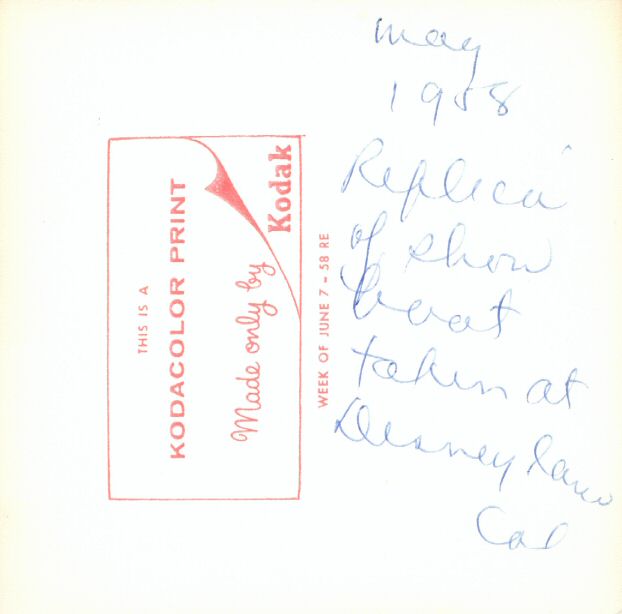 THIS IS A
KODACOLOR PRINT
Made only by
Kodak
WEEK OF JUNE 7 - 58 RE
may
1958
Replica
of show
boat
taken at
Disneyland
Cal